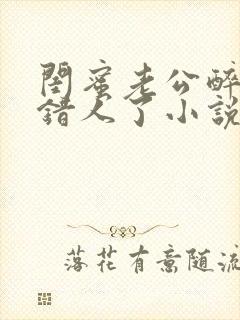 閨蜜老公醉
錯人了小說
落花有意随流